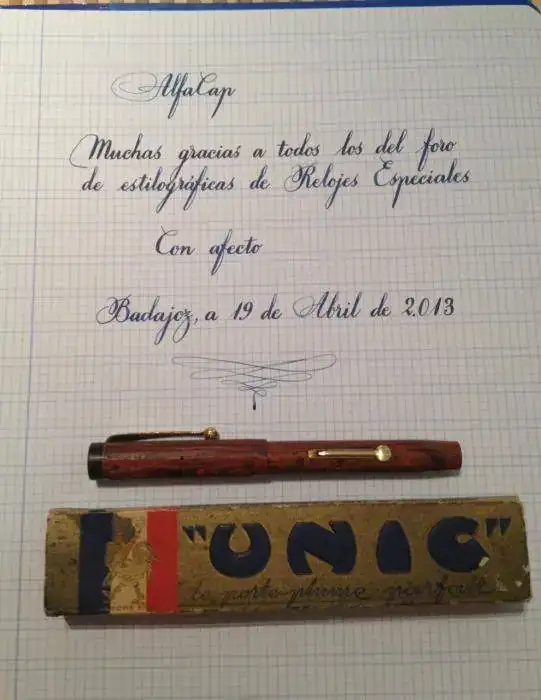 AlfaCap
Muchas gracias a todos los del foro
de estilográficas de Relojes Especiales
Con afecto
Badajoz, a 19 de Abril de 2.013
"UNIC"
le porte-plume parfait